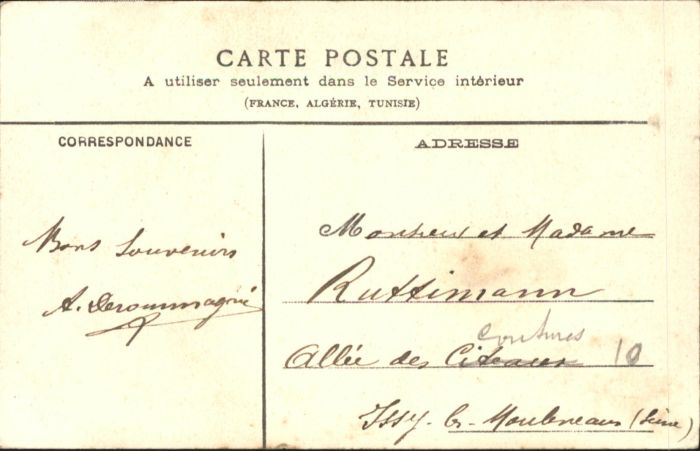 CARTE POSTALE
A utiliser seulement dans le Service intérieur
(FRANCE, ALGÉRIE, TUNISIE)
CORRESPONDANCE
ADRESSE
Bons Souvenirs
A. Derommagné
Monsieur et Madame
Ruttimann
Allée des Citeaux 10
Issy-les-Moulineaux (Seine)